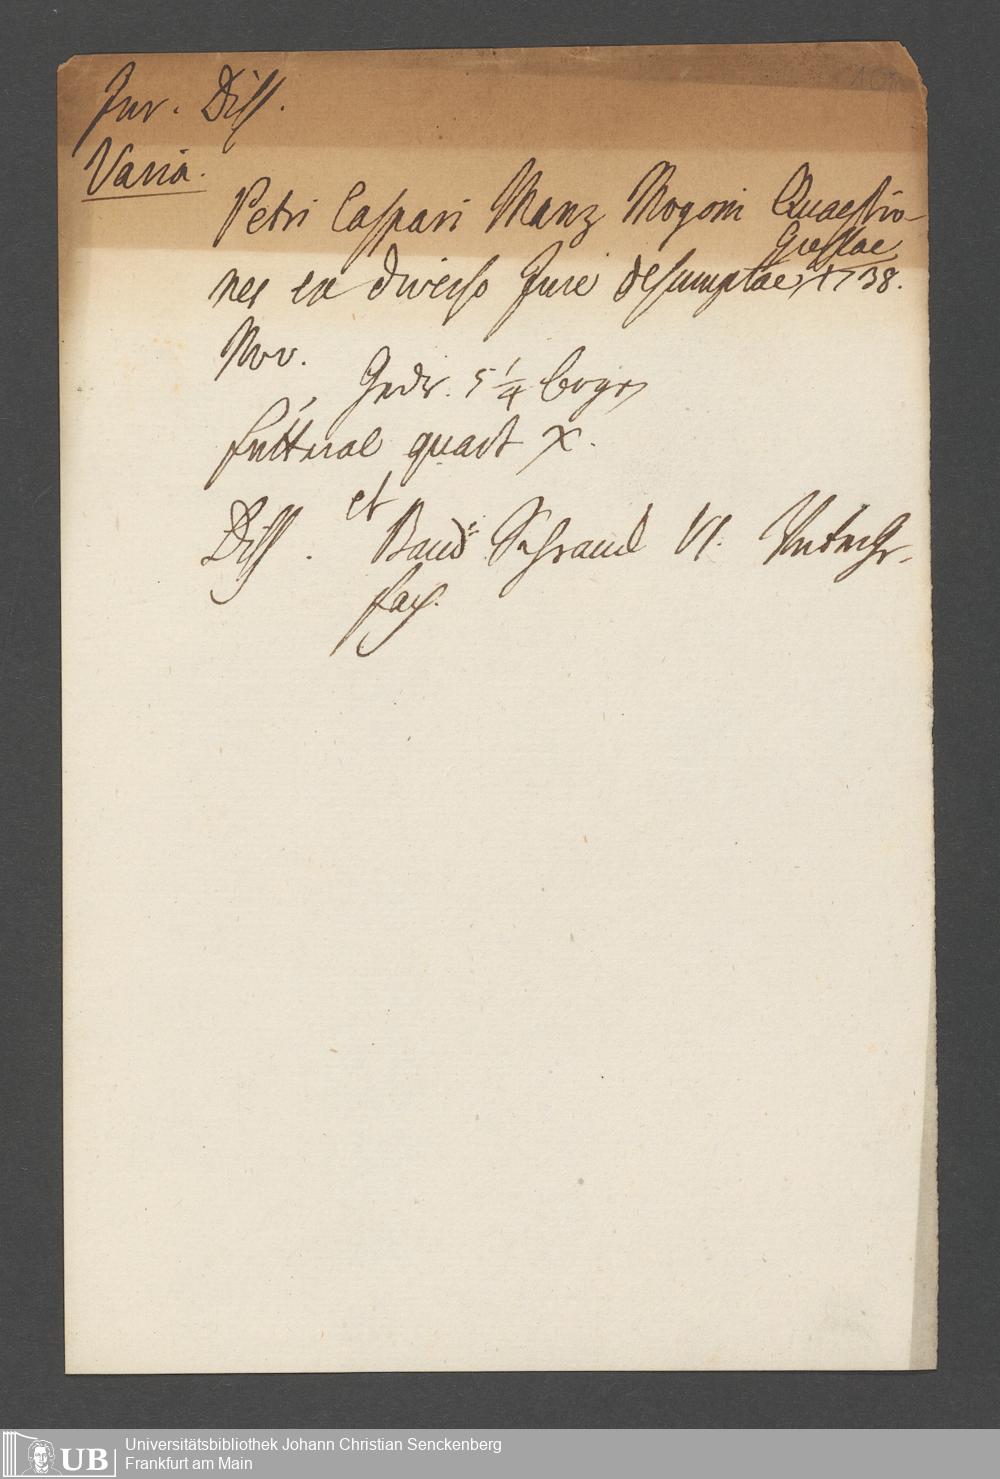 Jur. Diss.
Varia.
Petri Caspari Manz Mogoni Quaestio-
Giessae
nes ex diverso Jure desumptae, 1738.
Nov.
5 1/4 boge
futteral quart X.
et
Diss. Band Schrank VI.
fach.
Universitätsbibliothek Johann Christian Senckenberg
Frankfurt am Main
UB